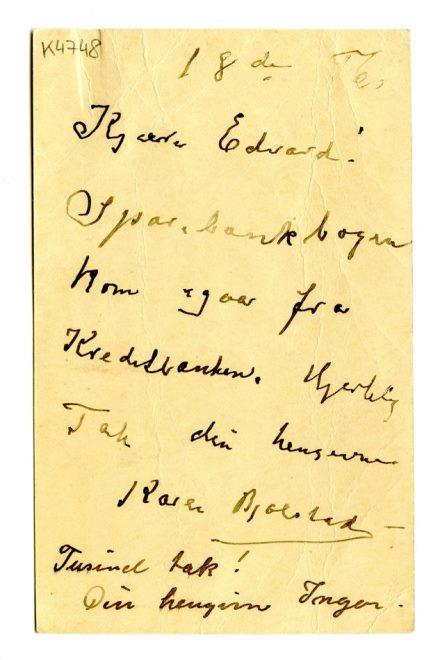 K4748
18de Fe
Kjære Edvard!
Sparebankbogen
kom igaar fra
Kreditbanken. Hjertelig
Tak din hengivne
Karen Bjølstad
Tusind tak!
Din hengivn Inger.